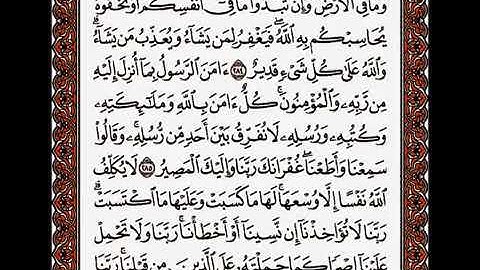 وَمَا فِي الْأَرْضِ وَإِن تُبْدُوا مَا فِي أَنفُسِكُمْ أَوْ تُخْفُوهُ
يُحَاسِبْكُم بِهِ اللَّهُ ۖ فَيَغْفِرُ لِمَن يَشَاءُ وَيُعَذِّبُ مَن يَشَاءُ ۗ
وَاللَّهُ عَلَىٰ كُلِّ شَيْءٍ قَدِيرٌ ٢٨٤ ءَامَنَ الرَّسُولُ بِمَا أُنزِلَ إِلَيْهِ
مِن رَّبِّهِ وَالْمُؤْمِنُونَ ۚ كُلٌّ ءَامَنَ بِاللَّهِ وَمَلَائِكَتِهِ
وَكُتُبِهِ وَرُسُلِهِ لَا نُفَرِّقُ بَيْنَ أَحَدٍ مِّن رُّسُلِهِ ۚ وَقَالُوا
سَمِعْنَا وَأَطَعْنَا ۖ غُفْرَانَكَ رَبَّنَا وَإِلَيْكَ الْمَصِيرُ ٢٨٥ لَا يُكَلِّفُ
اللَّهُ نَفْسًا إِلَّا وُسْعَهَا ۚ لَهَا مَا كَسَبَتْ وَعَلَيْهَا مَا اكْتَسَبَتْ ۗ
رَبَّنَا لَا تُؤَاخِذْنَا إِن نَّسِينَا أَوْ أَخْطَأْنَا ۚ رَبَّنَا وَلَا تَحْمِلْ
عَلَيْنَا إِصْرًا كَمَا حَمَلْتَهُ عَلَى الَّذِينَ مِن قَبْلِنَا ۚ رَبَّنَا